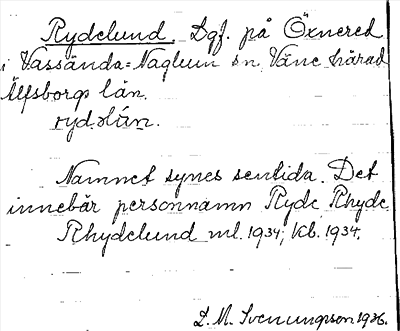 Rydelund. Lgf. på Öxnered
i Vassända=Naglum sn Väne härad
Älfsborgs län.
Namnet synes sentida. Det
innebär personnamn Ryde Rhyde.
Rhydelund ml. 1934; kb. 1934.
L. M. Svenungsson 1936.